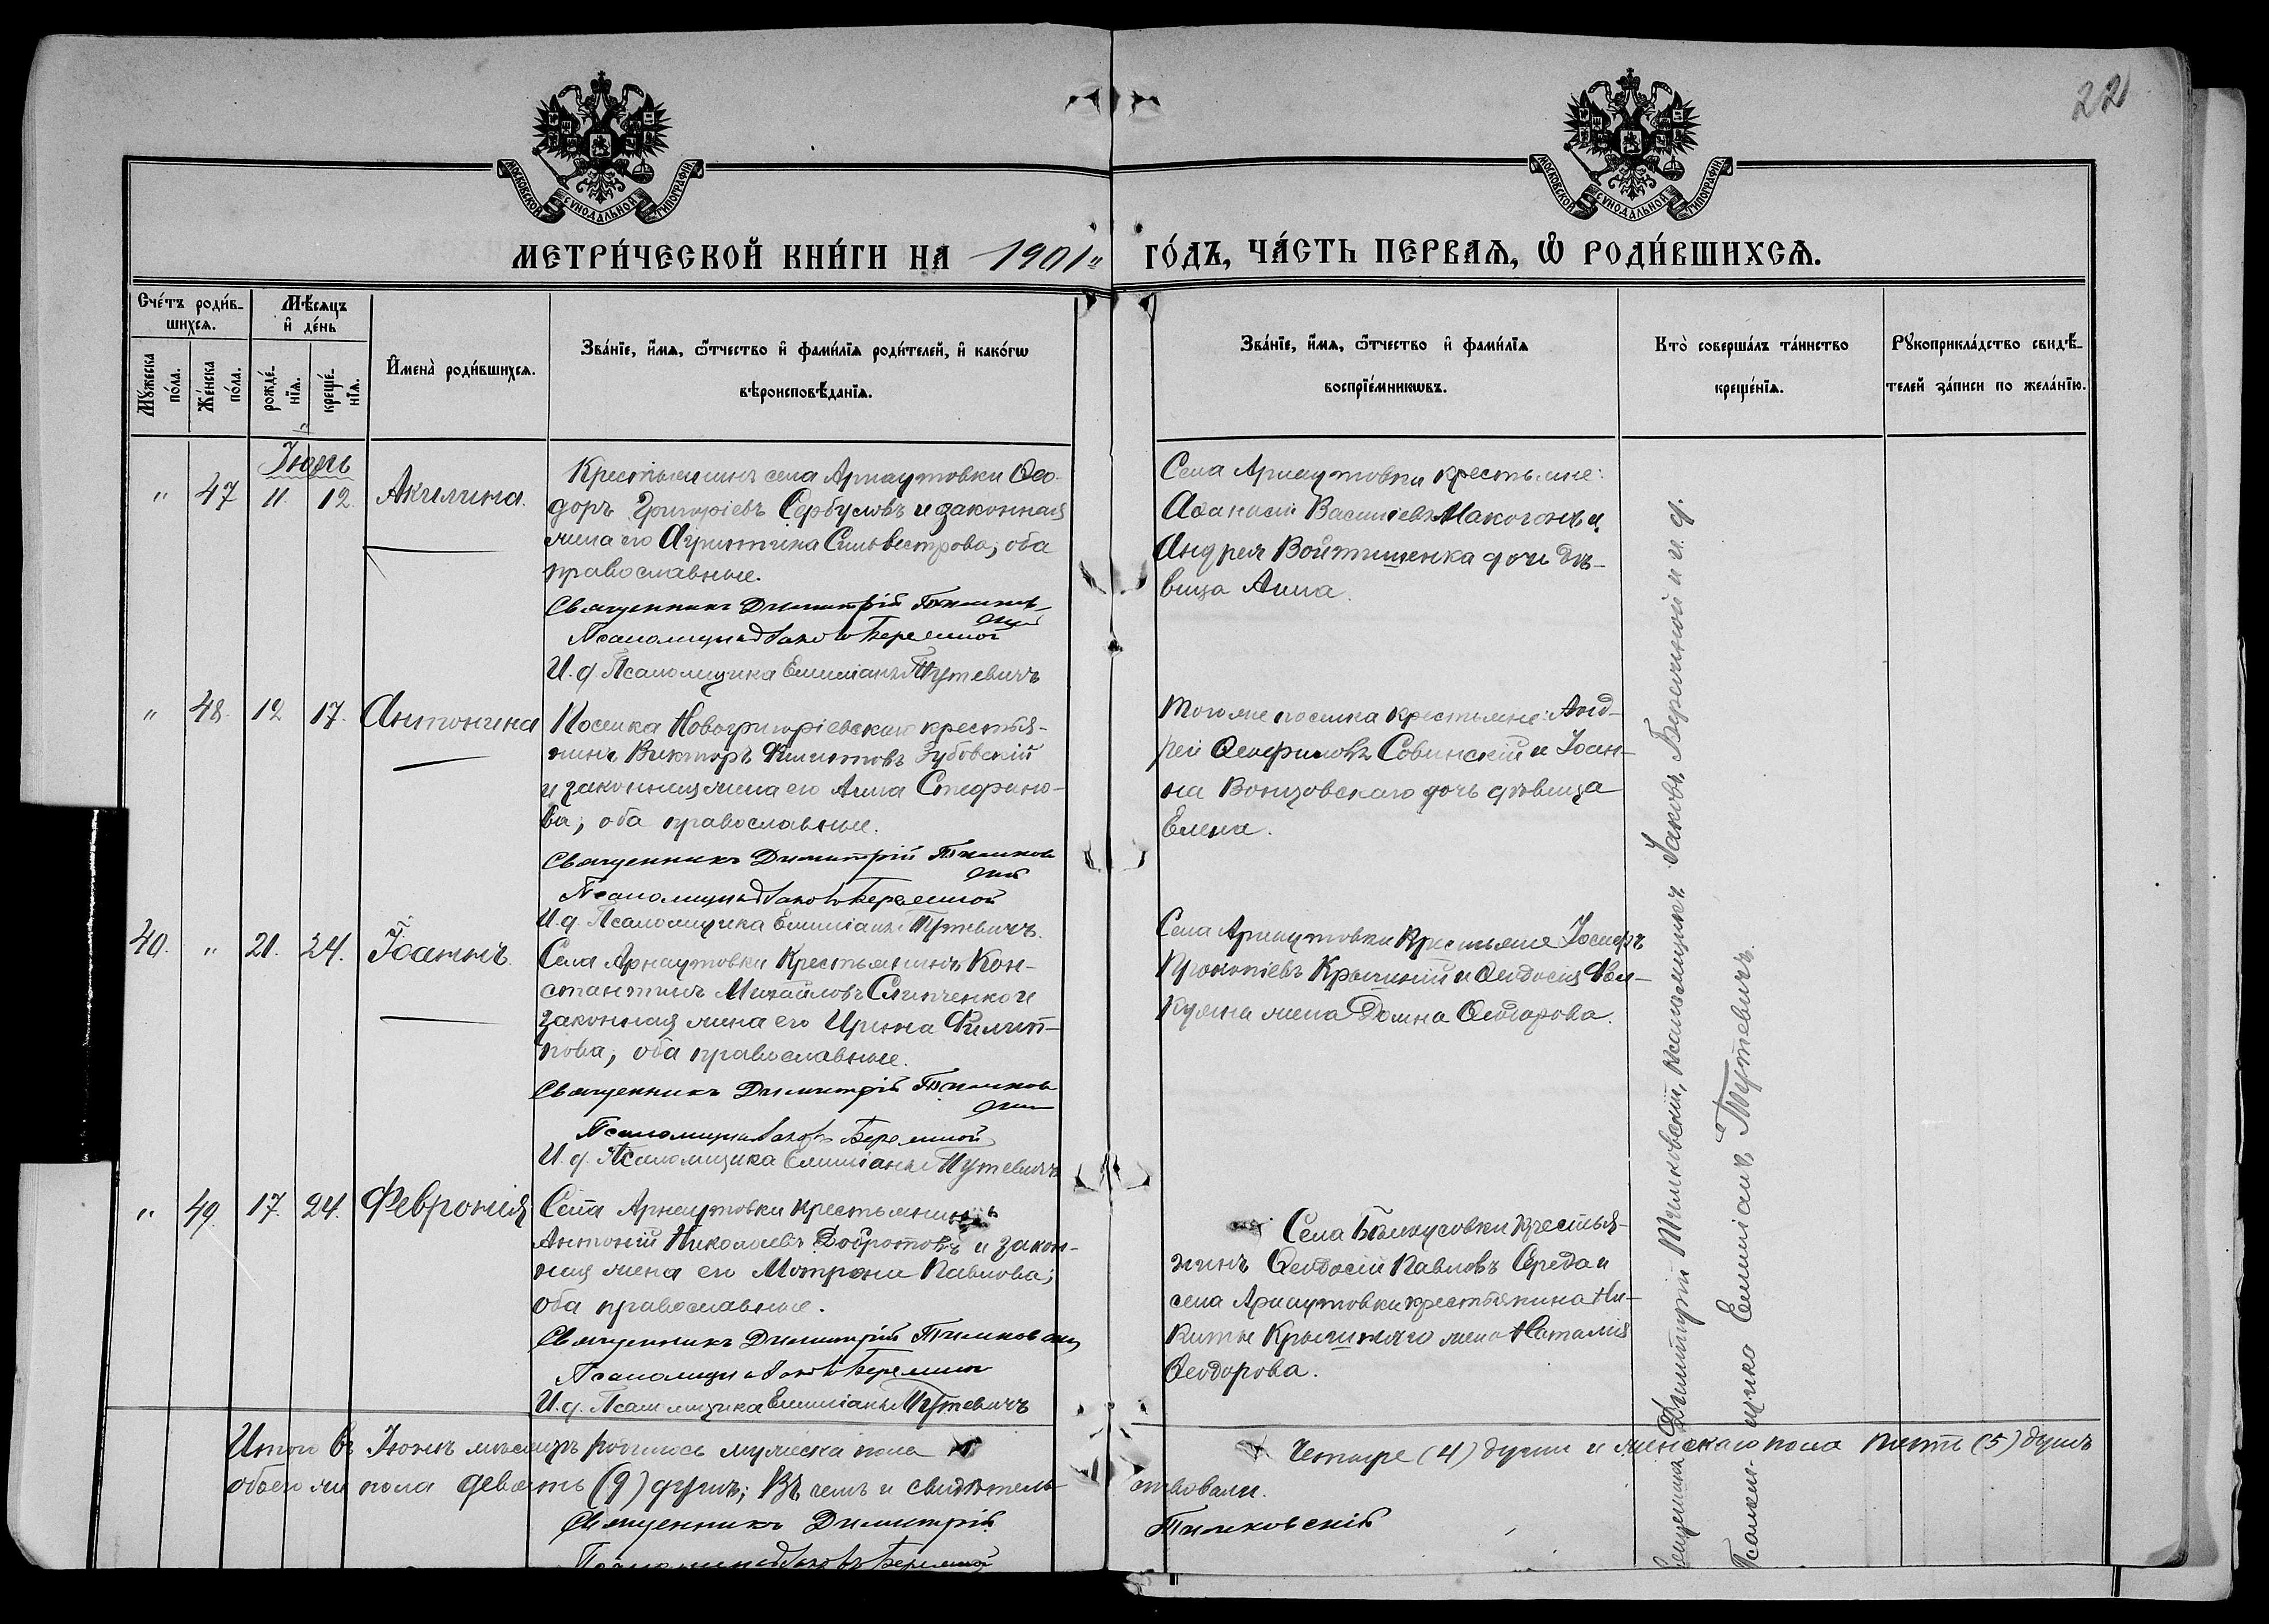 22
МОСКОВСКОЙ СѴНОДАЛЬНОЙ ТИПОГРАФІИ
МОСКОВСКОЙ СѴНОДАЛЬНОЙ ТИПОГРАФІИ
МЕТРИ́ЧЕСКОЙ КНИ́ГИ НА 1901
ГО́ДЪ, ЧА́СТЬ ПЕРВАѦ, Ѡ҆ РОДИ́ВШИХСѦ.
Сче́тъ роди́в-
шихсѧ.
Мꙋжеска по́ла.
Же́нска по́ла.
Мѣ́сѧцъ
и҆ де́нь
рожде́-
нїѧ.
креще́-
нїѧ.
И҆мена̀ роди́вшихсѧ.
Зва́нїе, и҆́мѧ, ѻ҆́тчество и҆ фами́лїѧ роди́телей, и҆ како́гѡ
вѣроисповѣ́данїѧ.
Зва́нїе, и҆́мѧ, ѻ҆́тчество и҆ фами́лїѧ
воспрїе́мникѡвъ.
Кто̀ соверша́лъ та́инство
креще́нїѧ.
Рꙋкоприкла́дство свидѣ́-
телей за́писи по жела́нїю.
" 47 11. 12. Акилина.
Крестьянинъ села Арнаутовки Ѳео-
доръ Григоріевъ Сербуловъ и законная
жена его Агриппина Сильвестрова; оба
православные.
Священникъ Димитрій Тимков-
скій
Псаломщикъ Іаковъ Бережной
И. д. Псаломщика Емиліанъ Тутевичъ
Села Арнаутовки крестьяне:
Аѳанасій Василіевъ Макогонъ и
Андрея Войтишенка дочь дѣ-
вица Анна.
" 48. 12 17. Антонина
Поселка Новогригоріевскаго крестья-
нинъ Викторъ Зубовскій
и законная жена его Анна Стефано-
ва; оба православные.
Священникъ Димитрій Тимков
скій
Псаломщикъ Іаковъ Бережной
И. д. Псаломщика Емиліанъ Тутевичъ.
Того же поселка крестьяне: Анд-
рей Совинскій и Іоан-
на дочь дѣвица
Елена.
40. " 21. 24. Іоаннъ.
Села Арнаутовки Крестьянинъ Кон-
стантинъ Михайловъ Слипченко и
законная жена его Ирина Филип-
пова; оба православные.
Священникъ Димитрій Тимков
скій
Псаломщикъ Іаковъ Бережной
И. д. Псаломщика Емиліанъ Тутевичъ
Села Арнаутовки Крестьяне Іосифъ
Прокопіевъ и Ѳеодосія
жена Домна Ѳеодорова.
" 49. 17. 24. Февронія
Села Арнаутовки крестьянинъ
Антоній Николаевъ Добротовъ и закон-
ная жена его Матрона Павлова;
оба православные.
Священникъ Димитрій Тимковскій
Псаломщикъ Іаковъ Бережной
И. д. Псаломщика Емиліанъ Тутевичъ
Села крестья-
нинъ Ѳеодосій Павловъ Середа и
села Арнаутовки крестьянина Ни-
киты жена Наталія
Ѳеодорова.
Священникъ Димитрій Тимковскій, псаломщикъ Іаковъ Бережной и и. д.
Псалом-щика Емиліанъ Тутевичъ.
Итого въ мѣсяцѣ родилось мужеска пола
Четыре (4) души и женскаго пола пять (5) душъ
обоего же пола девять (9) душъ; Въ чемъ и свидѣтель-
ствовали.
Священникъ Димитрій
Тимковскій
Псаломщикъ Іаковъ Бережной